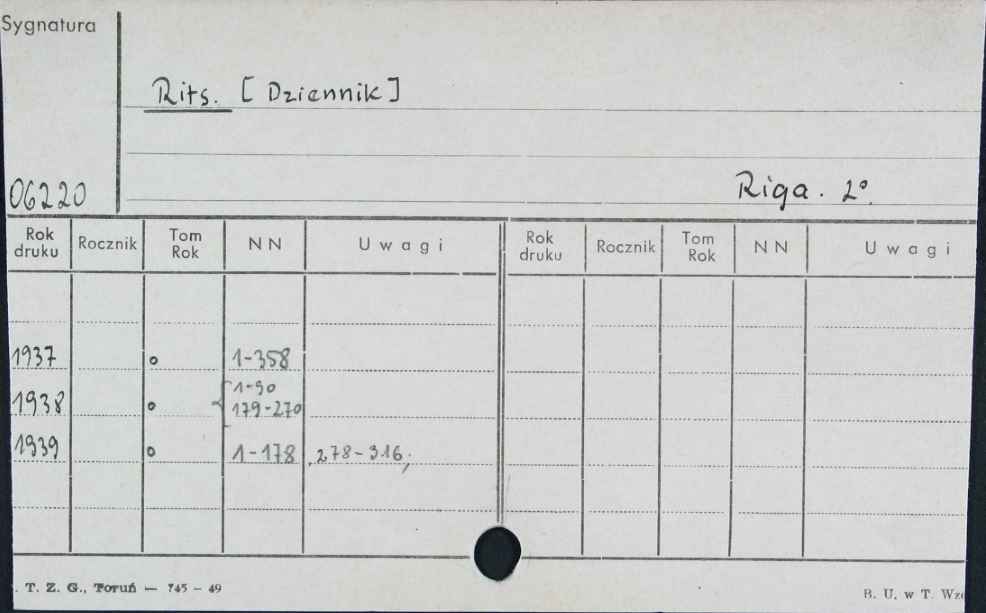 Sygnatura
Rits. [Dziennik]
06220
Riga. 2°.
Rok druku Rocznik Tom Rok NN Uwagi Rok druku Rocznik Tom Rok NN Uwagi
1937 o 1-358
1938 o 1-90
179-270
1939 o 1-178 278-316
T. Z. G., Toruń — 745 - 49
B. U. w T. Wz